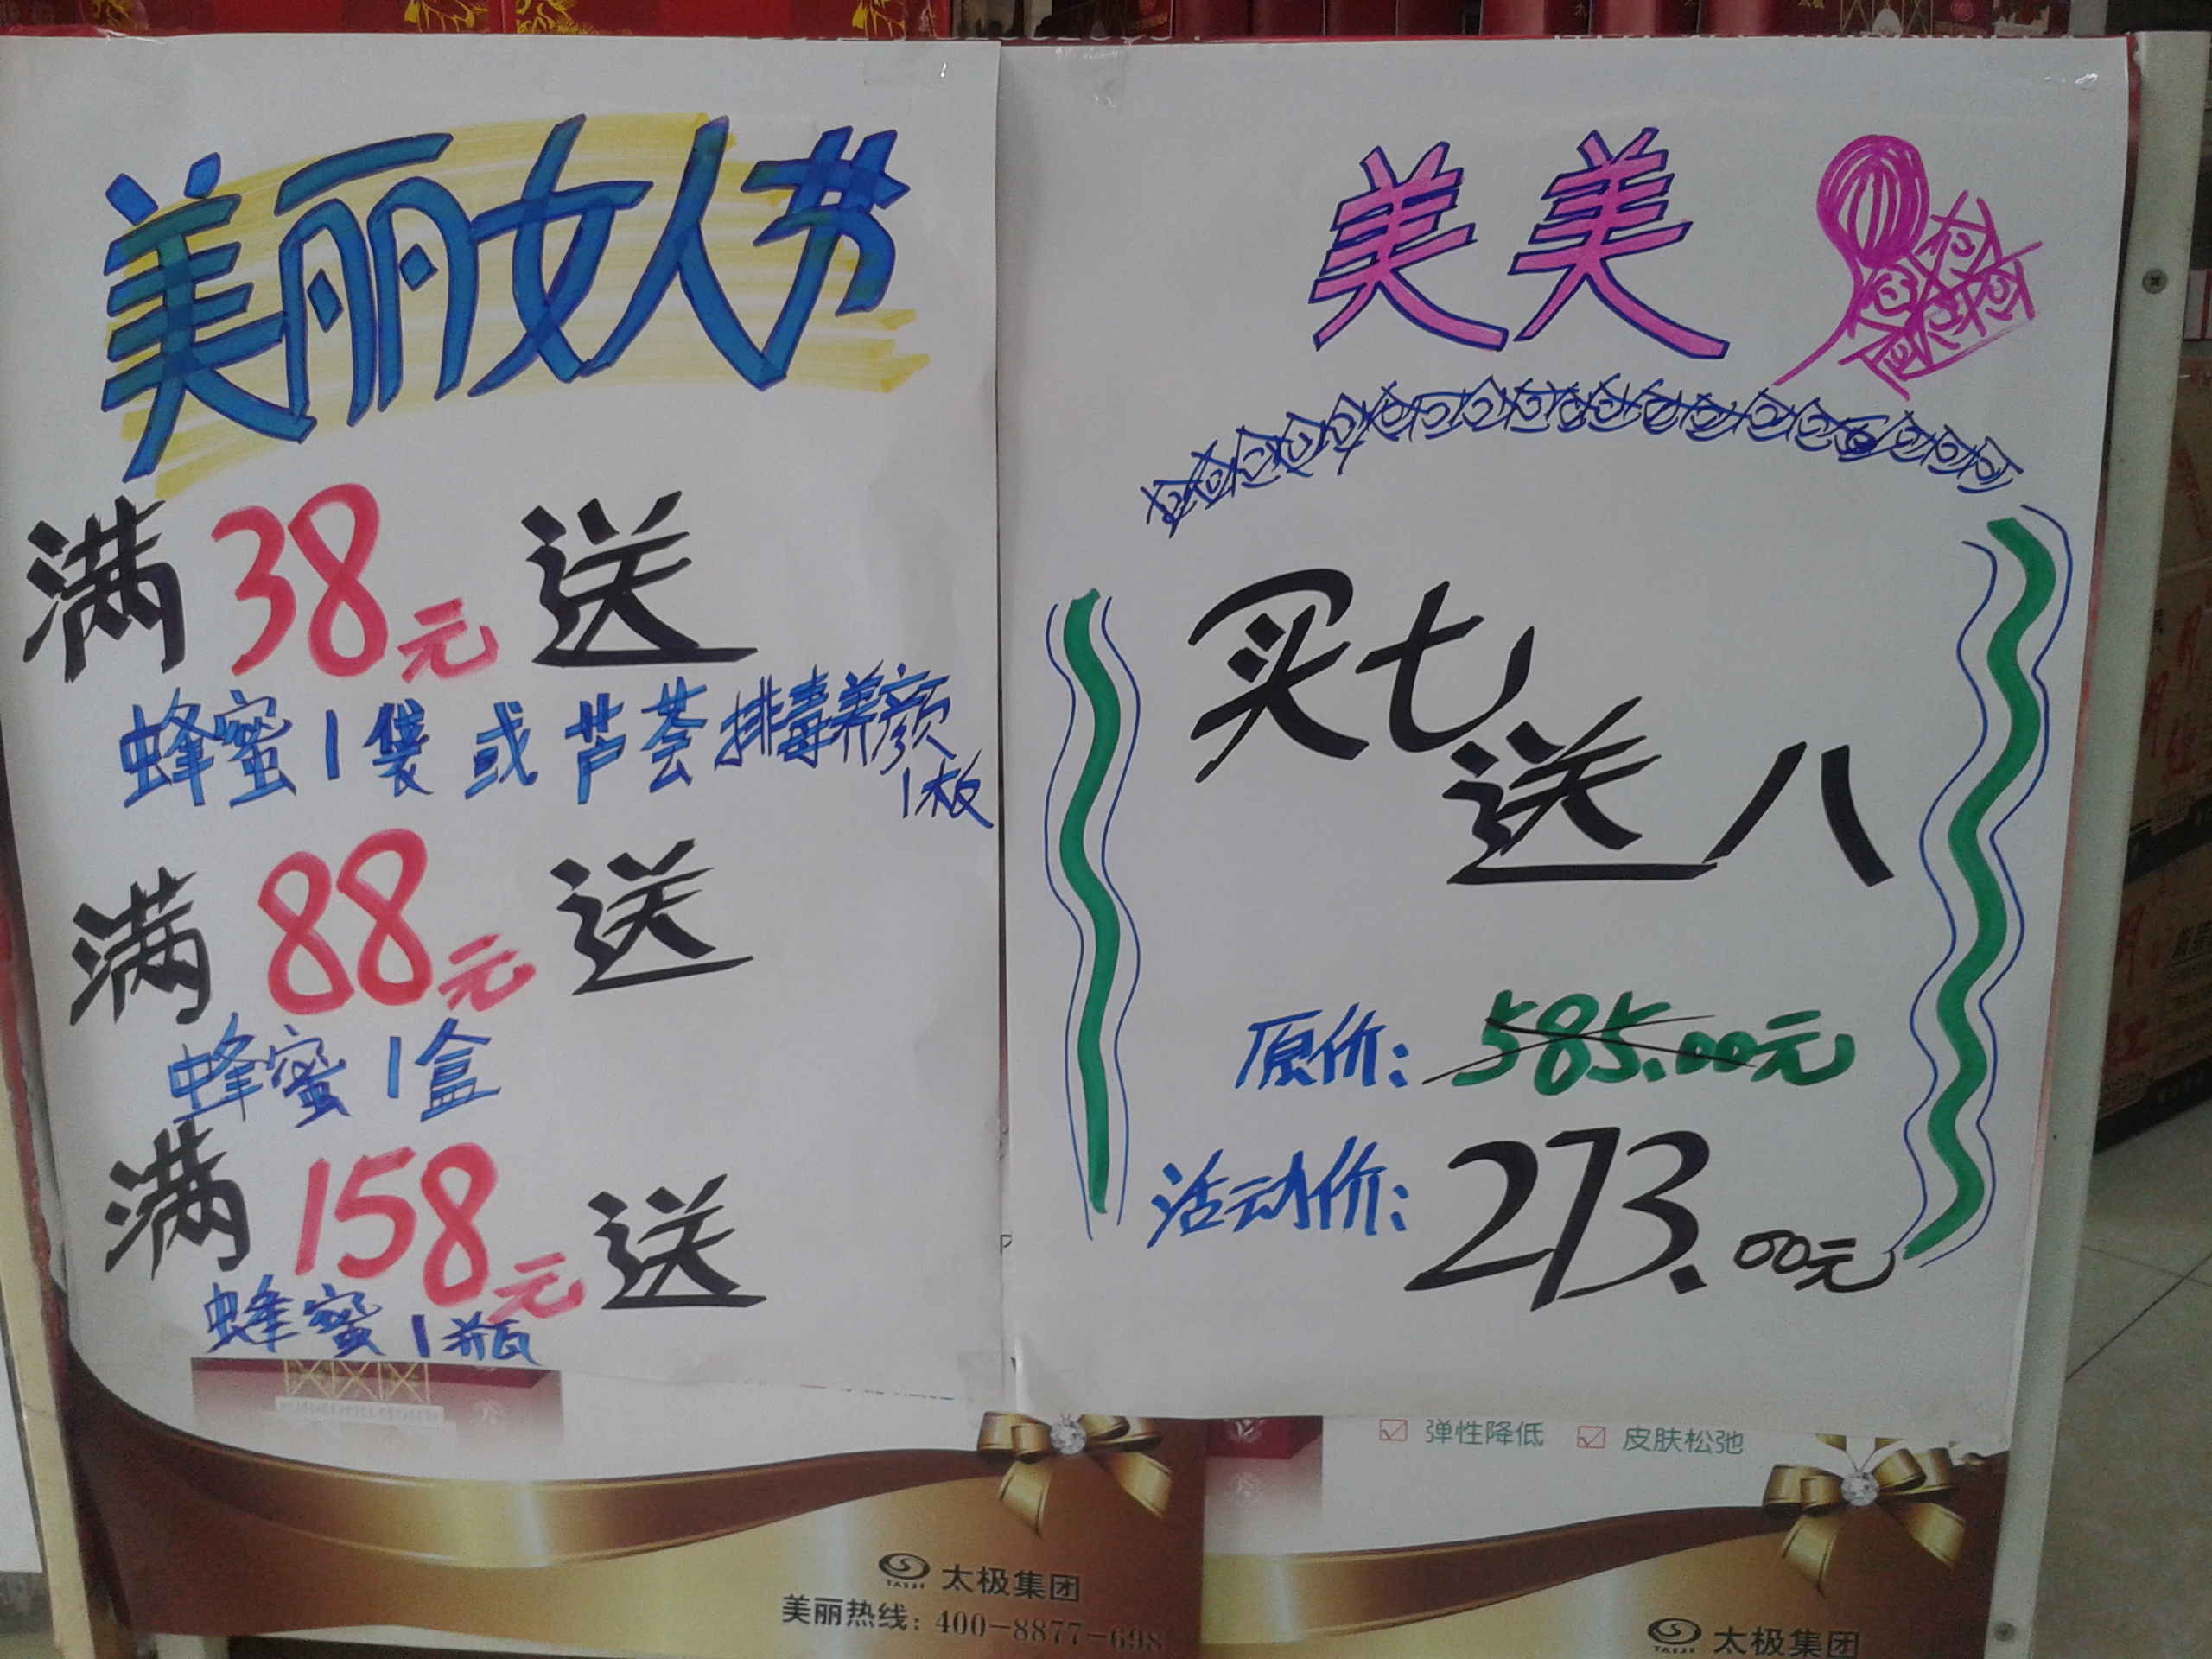 美丽女人节
满38元送
蜂蜜1袋或芦荟排毒养颜
1板
满88元送
蜂蜜1盒
满158元送
蜂蜜1瓶
太极集团
美丽热线：400-8877-698
美美
买七
送八
原价：585.00元
活动价：273.00元
弹性降低 皮肤松弛
TAIJI 太极集团